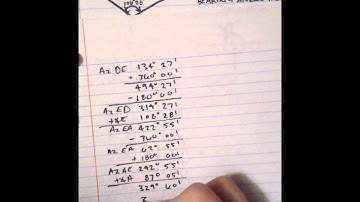 Az DE 134° 27'
+ 360° 00'
494° 27'
- 180° 00'
Az ED 314° 27'
+∡E 108° 28'
Az EA 422° 55'
- 360° 00'
Az EA 62° 55'
+ 180° 00'
Az AE 242° 55'
+∡A 87° 05'
329° 60'
3